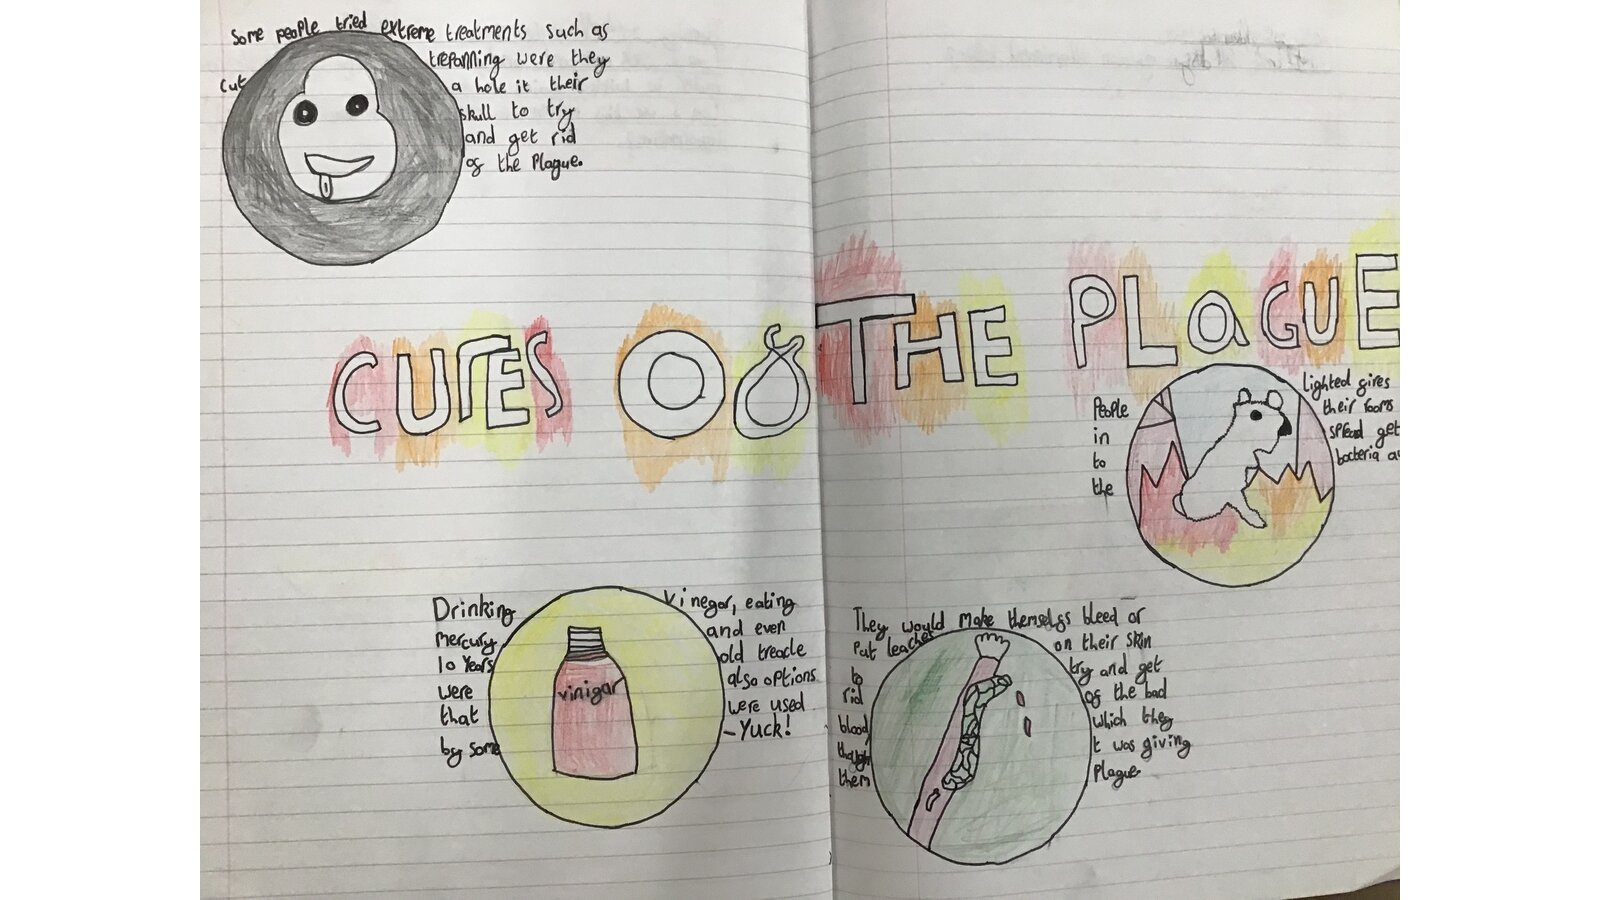 Some people tried extreme treatments such as
trepanning were they
cut a hole it their
skull to try
and get rid
of the Plague.
CURES OF THE PLAGUE
People lighted fires
in their rooms
to spread get
the bacteria
Drinking vinegar, eating
mercury and even
10 years old treacle
were also options
that were used
by some -Yuck!
vinigar
They would make themselfs bleed or
Put leaches on their skin
to try and get
rid of the bad
blood which they
though t was giving
them plague